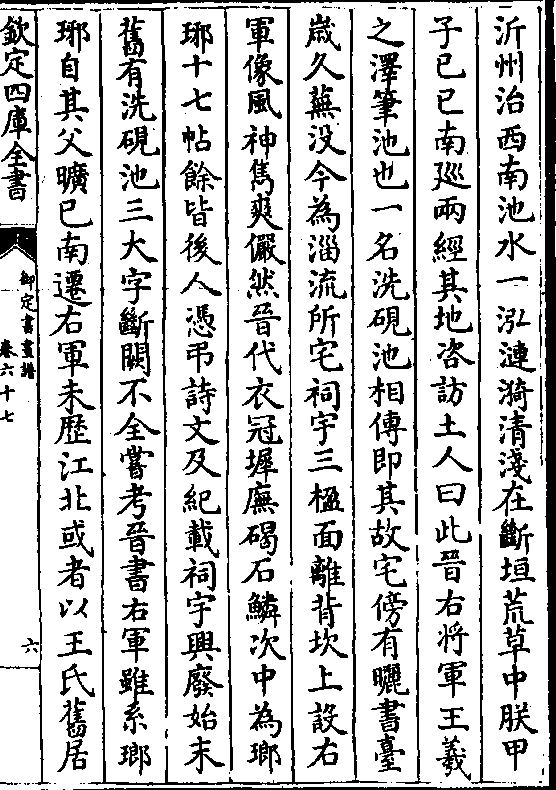 沂州治西南池水一泓漣漪清淺在斷垣荒草中朕甲
子己巳南廵兩經其地咨訪土人曰此晉右将軍王羲
之澤筆池也一名洗硯池相傳即其故宅傍有曬書臺
歲久蕪没今為淄流所宅祠宇三楹面離背坎上設右
軍像風神雋爽儼然晉代衣冠墀廡碣石鱗次中為瑯
琊十七帖餘皆後人憑弔詩文及紀載祠宇興廢始末
舊有洗硯池三大字斷闕不全嘗考晉書右軍雖系瑯
琊自其父曠已南遷右軍未歷江北或者以王氏舊居
欽定四庫全書
御定書畫譜
卷六十七
六